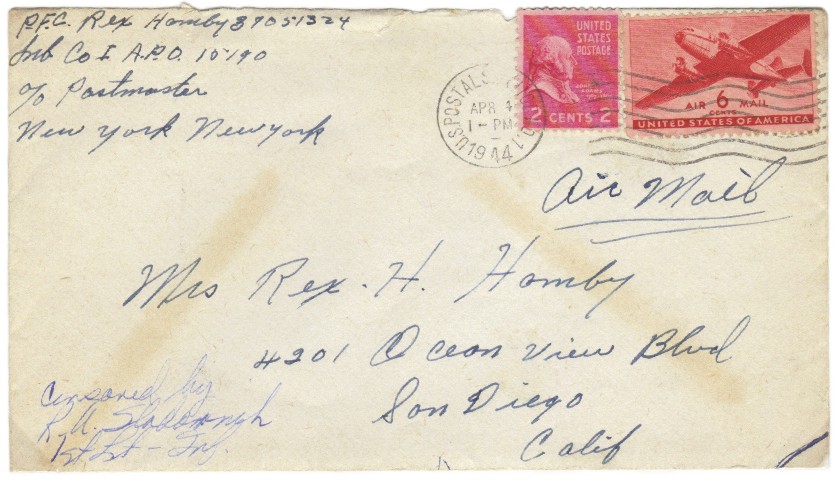 P.F.C. Rex Hamby 39051324
Inb Co I A.P.O. 15190
c/o Postmaster
New York New York
UNITED
STATES
POSTAGE
2 CENTS 2
AIR 6 MAIL
CENTS
UNITED STATES OF AMERICA
U.S. POSTAL S
APR 4
1 - PM
1944
Air Mail
Mrs Rex. H. Hamby
4201 Ocean View Blvd
San Diego
Calif
Censored by
R. A.
1st Lt - Inf.